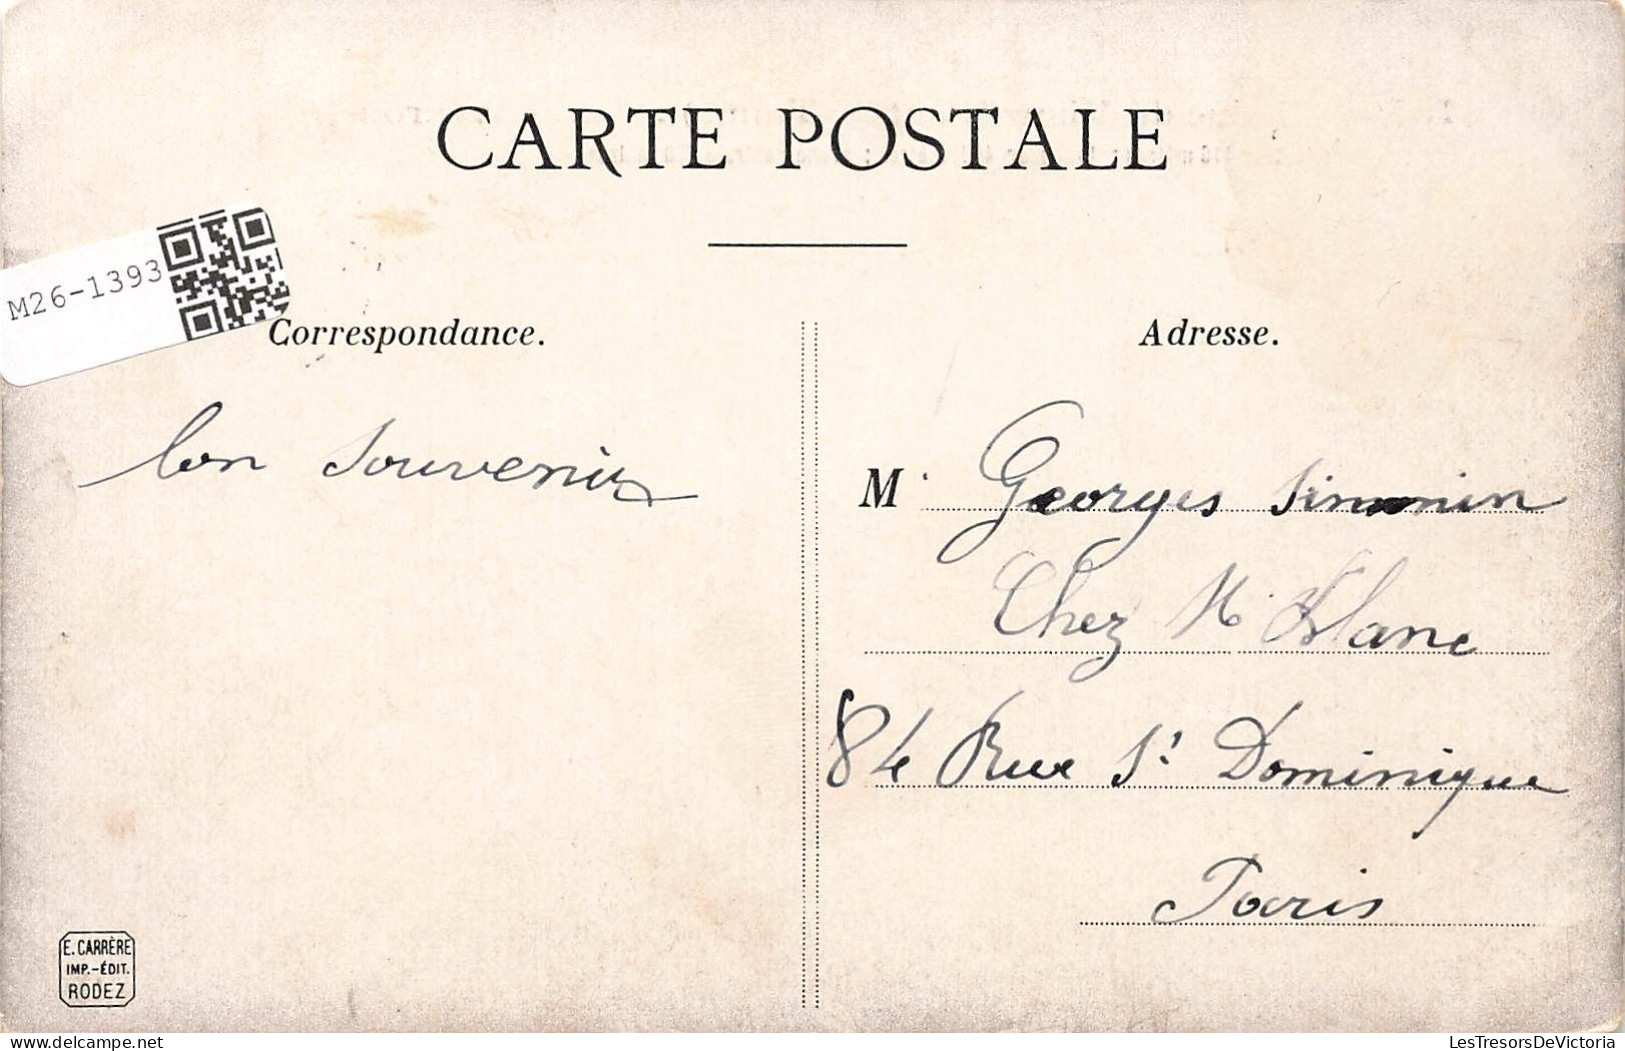 CARTE POSTALE
M26-1393
Correspondance.
bon souvenir
Adresse.
M. Georges Simonin
Chez M. Blanc
84 Rue St Dominique
Paris
E. CARRÈRE
IMP.-ÉDIT.
RODEZ
delcampe.net
LesTresorsDeVictoria